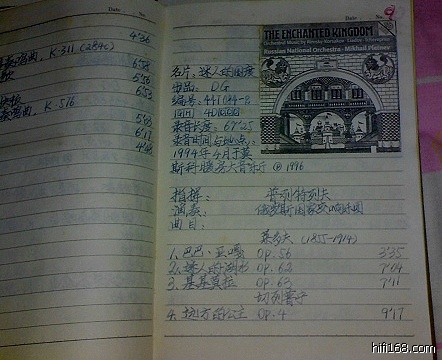 Date
No.
K.311 (284c)
4'36
6'58
5'56
6'53
奏鸣曲, K.576
5'03
6'17
4'48
Date
No.
THE ENCHANTED KINGDOM
Orchestral Music by Rimsky-Korsakov · Liadov · Tcherepnin
Russian National Orchestra · Mikhail Pletnev
名片: 迷人的国度
出品: DG
编号:
录音长度: 69'25
录音时间与地点:
1994年4月于莫
斯科 大音乐厅 ℗ 1996
指挥: 普列特涅夫
演奏: 俄罗斯国家交响乐团
曲目:
(1855-1914)
1. 巴巴·亚嘎 Op.56 3'35
2. 迷人的湖 Op.62 7'04
3. 基基莫拉 Op.63 7'41
4. 远方的公主 Op.4 9'17
hifi168.com